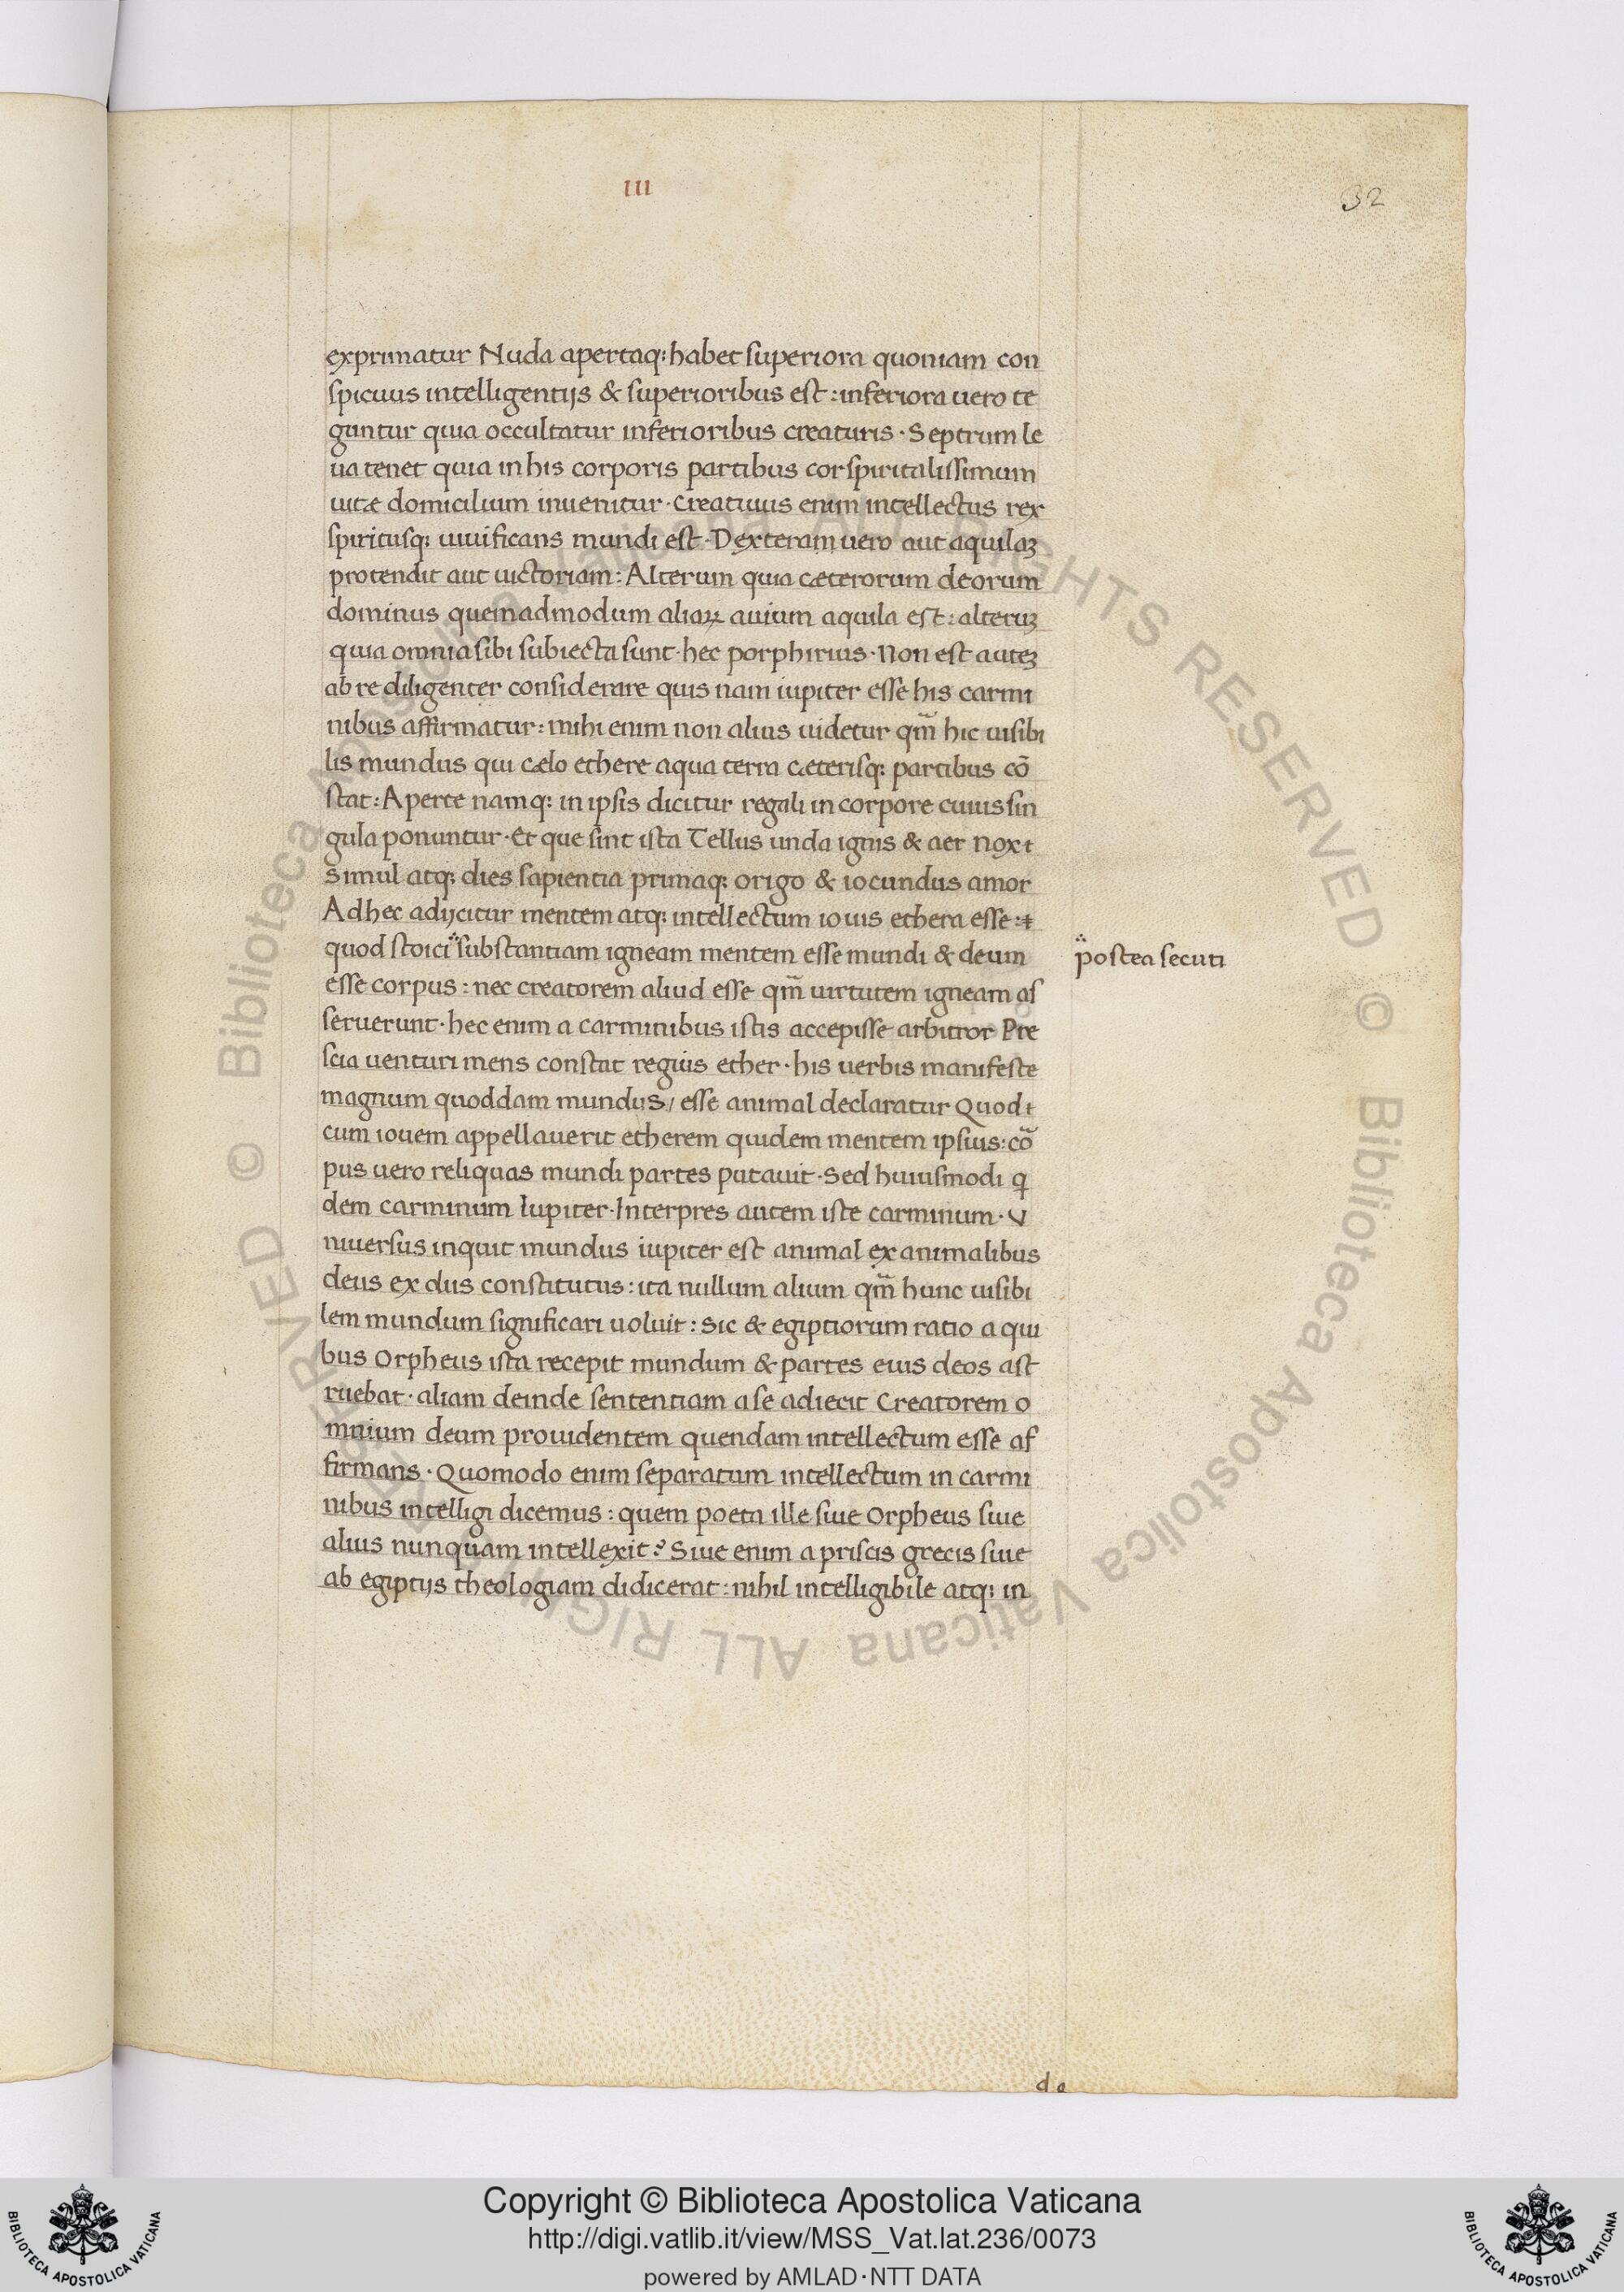 III
32
exprimatur Nuda apertaq: habet superiora quoniam con
spicuus intelligentijs & superioribus est: inferiora uero te
guntur quia occultatur inferioribus creaturis · Septrum le
ua tenet quia in his corporis partibus cor spiritalissimum
uitæ domicilium inuenitur · creatiuus enim intellectus rex
spiritusq: uiuificans mundi est · Dexteram uero aut aquilaꝫ
protendit aut uictoriam: Alterum quia cæterorum deorum
dominus quemadmodum aliaꝝ auium aquila est: alteruꝫ
quia omnia sibi subiecta sunt · hec porphirius · Non est auteꝫ
ab re diligenter considerare quis nam iupiter esse his carmi
nibus affirmatur: mihi enim non alius uidetur qm̃ hic uisibi
lis mundus qui cælo ethere aqua terra cæterisq: partibus cõ
stat: Aperte namq: in ipsis dicitur regali in corpore cuius sin
gula ponuntur · Et que sint ista Tellus unda ignis & aer nox
Simul atq: dies sapientia primaq: origo & iocundus amor
Ad hec adijcitur mentem atq: intellectum iouis ethera esse:
quod stoici substantiam igneam mentem esse mundi & deum
postea secuti
esse corpus: nec creatorem aliud esse qm̃ uirtutem igneam as
seruerunt · hec enim a carminibus istis accepisse arbitror Pre
scia uenturi mens constat regius ether · his uerbis manifeste
magnum quoddam mundus/ esse animal declaratur Quod
cum iouem appellauerit etherem quidem mentem ipsius: cõ
pus uero reliquas mundi partes putauit · Sed huiusmodi q
dem carminum Iupiter · Interpres autem iste carminum · V
niuersus inquit mundus iupiter est animal ex animalibus
deus ex diis constitutus: ita nullum alium qm̃ hunc uisibi
lem mundum significari uoluit: Sic & egiptiorum ratio a qui
bus Orpheus ista recepit mundum & partes eius deos ast
ruebat · aliam deinde sententiam a se adiecit Creatorem o
mnium deum prouidentem quendam intellectum esse af
firmans · Quomodo enim separatum intellectum in carmi
nibus intelligi dicemus: quem poeta ille siue Orpheus siue
alius nunquam intellexit? Siue enim a priscis grecis siue
ab egiptijs theologiam didicerat: nihil intelligibile atq: in
© Biblioteca Apostolica Vaticana ALL RIGHTS RESERVED © Biblioteca Apostolica Vaticana
Copyright © Biblioteca Apostolica Vaticana
http://digi.vatlib.it/view/MSS_Vat.lat.236/0073
powered by AMLAD·NTT DATA
BIBLIOTECA APOSTOLICA VATICANA
BIBLIOTECA APOSTOLICA VATICANA